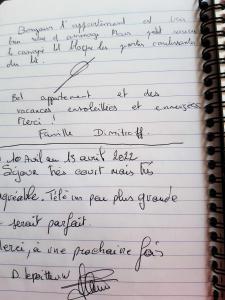 Bonjour l'appartement est très
bien mais
le canapé lit bloque les portes coulissantes
du lit.
Bel appartement et des
vacances ensoleillées et enneigées
Merci !
Famille Dimitroff.
10 avril au 15 avril 2022
Séjour très court mais très
agréable. Télé un peu plus grande
serait parfait.
Merci, à une prochaine fois